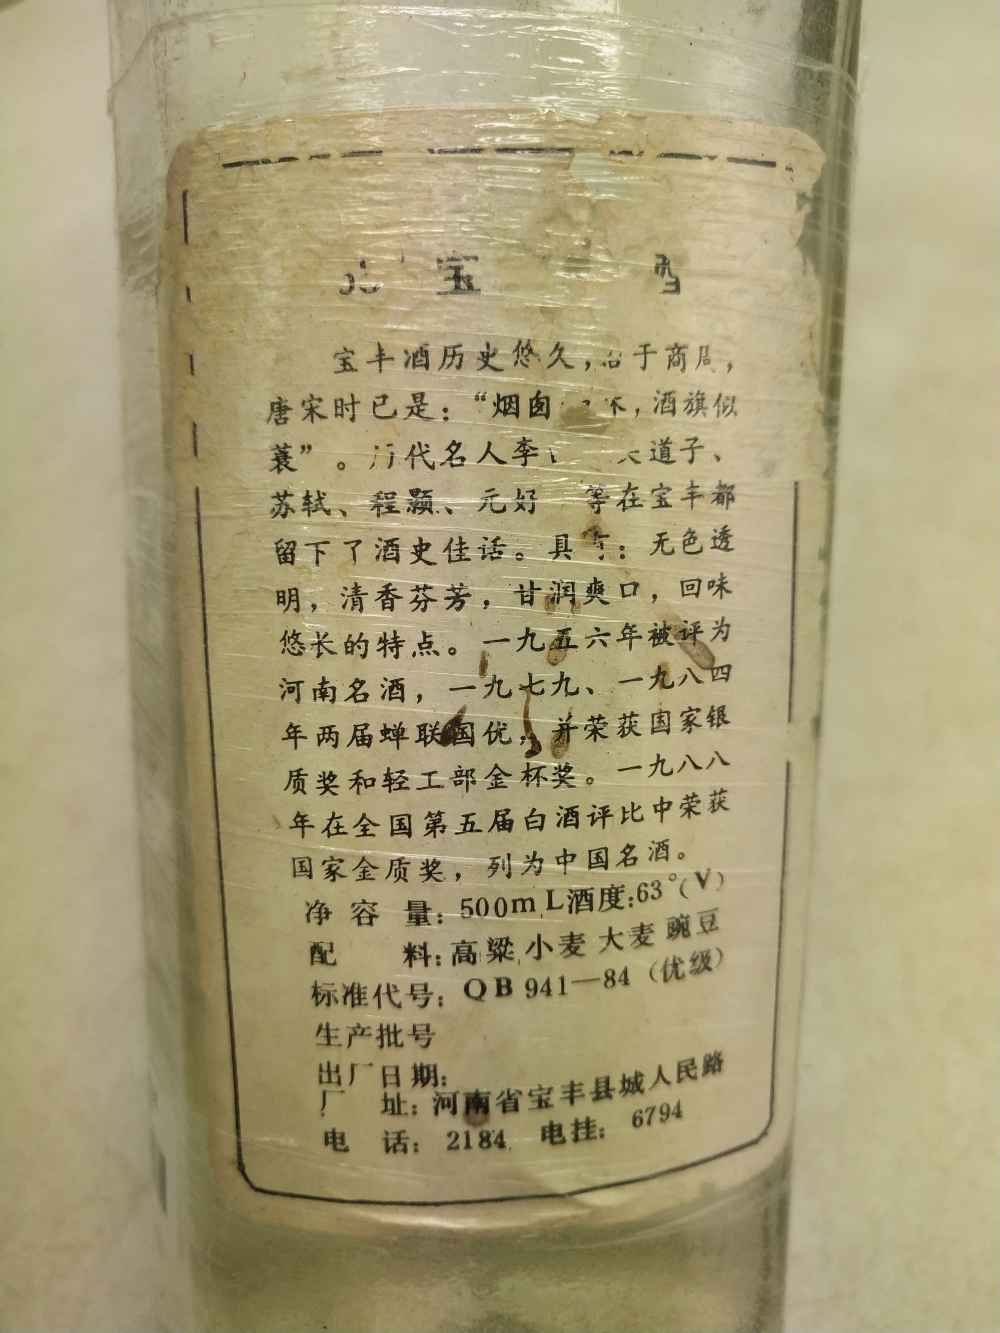 宝
宝丰酒历史悠久，于商周，
唐宋时已是：“烟囱，酒旗似
蓑”。历代名人李道子、
苏轼、程颢、元好等在宝丰都
留下了酒史佳话。具有：无色透
明，清香芬芳，甘润爽口，回味
悠长的特点。一九五六年被评为
河南名酒，一九七九、一九八四
年两届蝉联国优，并荣获国家银
质奖和轻工部金杯奖。一九八八
年在全国第五届白酒评比中荣获
国家金质奖，列为中国名酒。
净容量：500mL酒度：63°(V)
配料：高粱 小麦 大麦 豌豆
标准代号：QB 941—84（优级）
生产批号
出厂日期：
厂址：河南省宝丰县城人民路
电话：2184 电挂：6794